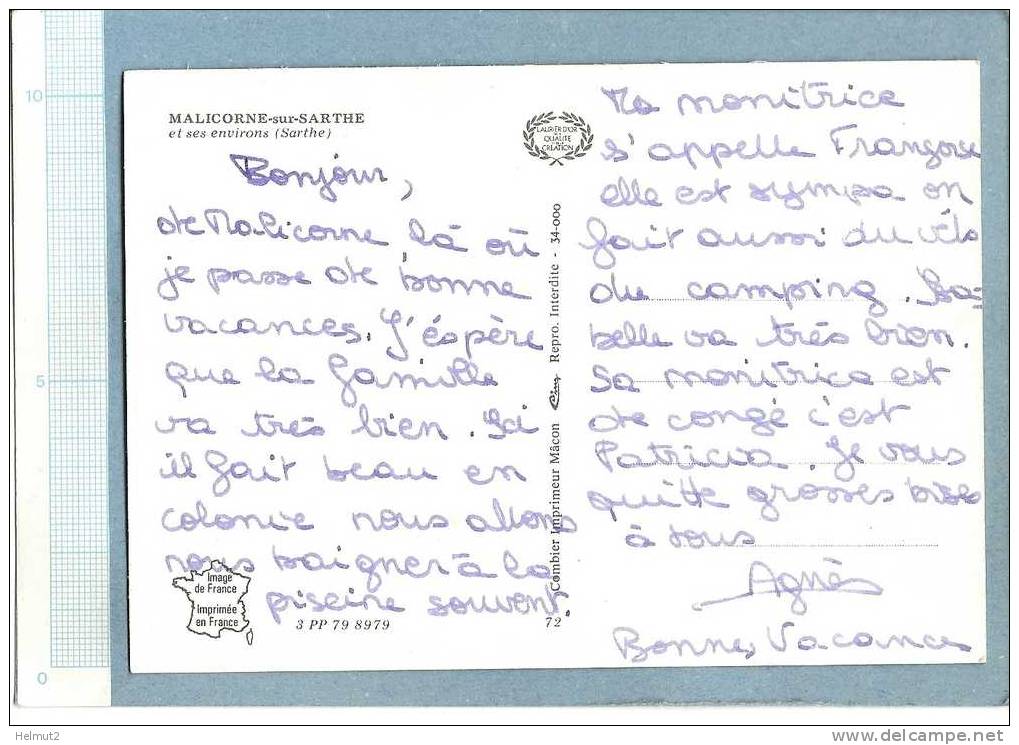 10
5
0
MALICORNE-sur-SARTHE
et ses environs (Sarthe)
Bonjour,
de Malicorne là où
je passe de bonne
vacances. J'éspère
que la famille
va très bien. Ici
il fait beau en
colonie nous allons
nous baigner à la
piscine souvent.
Image
de France
Imprimée
en France
3 PP 79 8979
72
LAURIER D'OR
DE LA
QUALITÉ
CRÉATION
Combier Imprimeur Mâcon Cim Repro. Interdite - 34-000
Ma monitrice
s'appelle Françoise
elle est sympa on
fait aussi du vélo
du camping. Isa-
belle va très bien.
Sa monitrice est
de congé c'est
Patricia. Je vous
quitte grosses bises
à tous
Agnès
Bonnes Vacances
Helmut2
www.delcampe.net